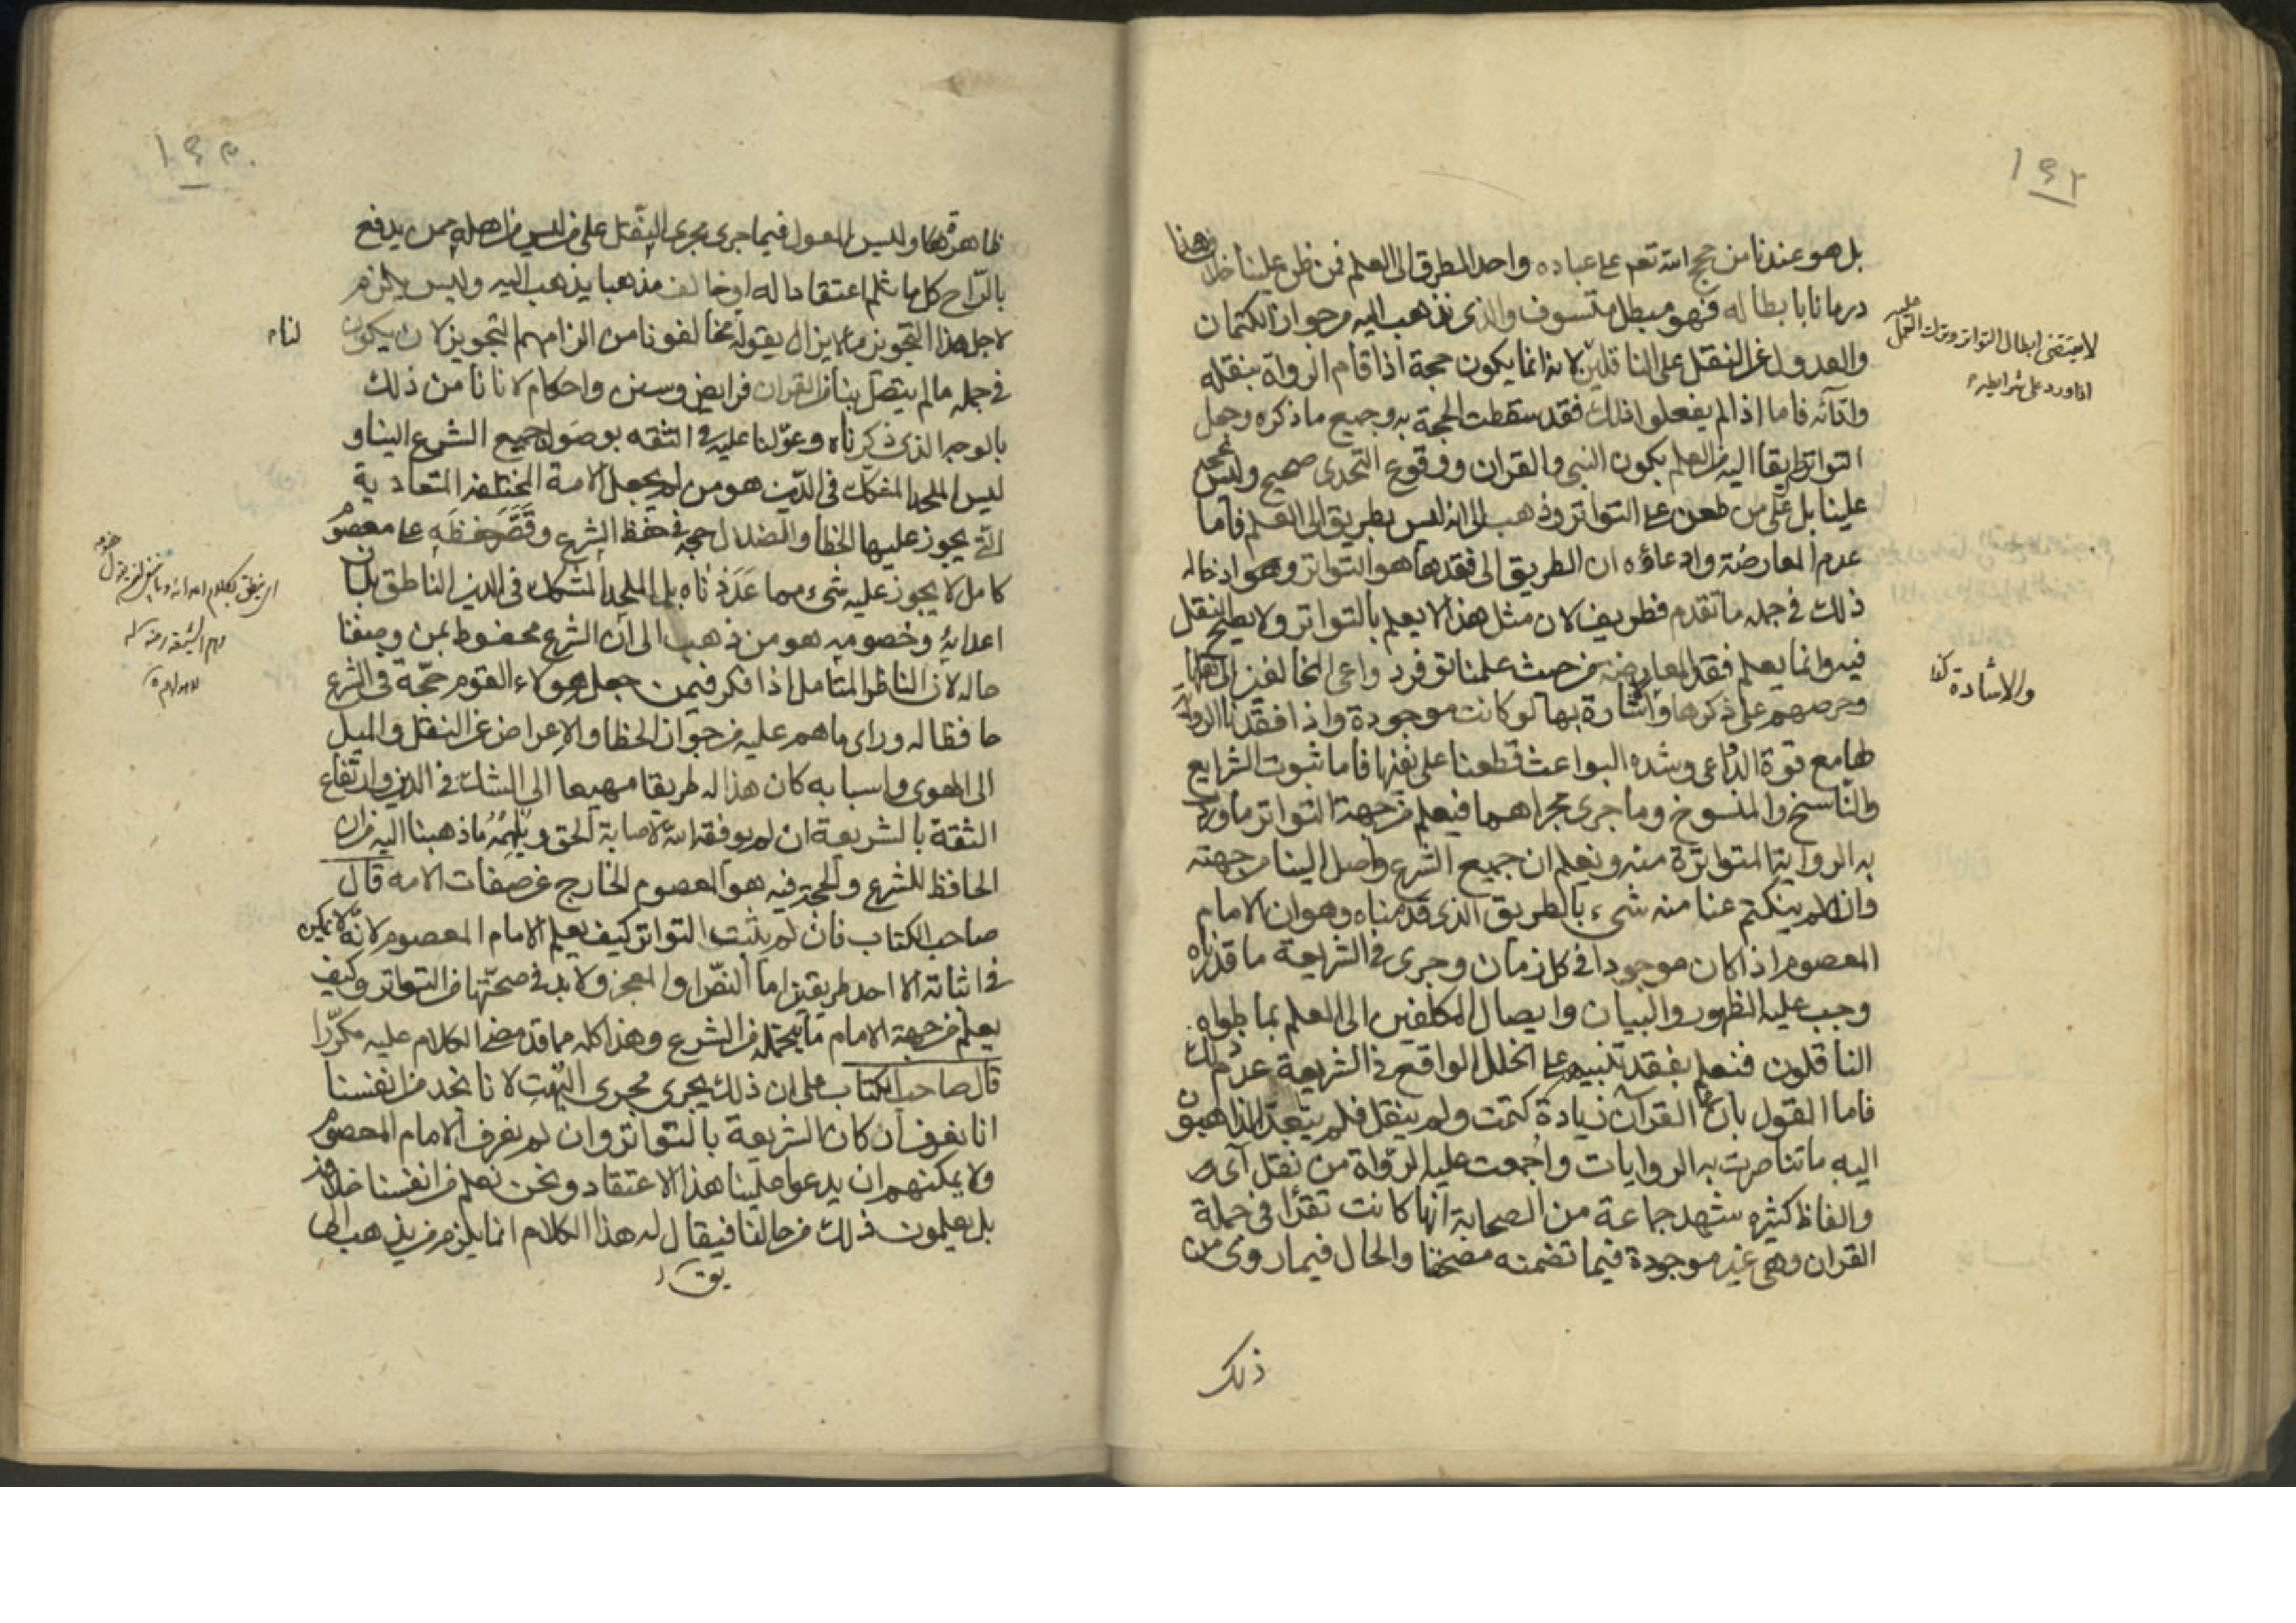 ١٤٢
بل هو عندنا من حجج الله تعم على عباده واحد الطرق الى العلم فمن ظن علينا خلاف هذا
ورمانا بابطاله فهو مبطل متسوف والذى نذهب اليه من جواز الكتمان
والعدول عن النقل على الناقلين لانه انما يكون حجة اذا قام الرواة بنقله
وادآئه فاما اذا لم يفعلوا ذلك فقد سقطت الحجة به وجميع ما ذكره وجعل
التواتر طريقا اليه من العلم بكون النبى والقران ووقوع التحدى صحيح وليس بحجة
علينا بل على من طعن على التواتر وذهب الى انه ليس بطريق الى العلم فاما
عدم المعارضة وادعاؤه ان الطريق الى فقدها هو التواتر وهو ادخاله
ذلك فى جمله ما تقدم فطريف لان مثل هذا لا يعلم بالتواتر ولا يصح النقل
فيه وانما يعلم فقد المعارضة من حيث علمنا توفر دواعى المخالفين الى نقلها
وحرصهم على ذكرها واشارة بها لو كانت موجودة واذا فقدنا الرواية
لها مع قوة الدواعى وشده البواعث قطعنا على نفيها فاما ثبوت الشرايع
والناسخ والمنسوخ وما جرى مجراهما فيعلم من جهة التواتر ما وردت
به الرواية المتواترة منه ونعلم ان جميع الشرع واصل الينا من جهته
وان لم ينكتم عنا منه شىء بالطريق الذى قدمناه وهو ان الامام
المعصوم اذا كان موجودا فى كل زمان وجرى فى الشريعة ما قدرناه
وجب عليه الظهور والبيان وايصال المكلفين الى العلم بما طواه
الناقلون فنعلم بفقد تنبيهه على الخلل الواقع فى الشريعة عدم ذلك
فاما القول بان فى القرآن زيادة كتمت ولم ينقل فلم يتعد الذاهبون
اليه ما تناصرت به الروايات واجمعت عليه الرواة من نقل آى
والفاظ كثيره شهد جماعة من الصحابة انها كانت تقرا فى جملة
القران وهى غير موجودة فيما تضمنه مصحفنا والحال فيما روى من
ذلك
لا يقتضى ابطال التواتر وترك التعمل عليه
اذا ورد على شرايطه
والاشادة
ظاهرة وليس المعول فيما جرى مجرى النقل على من ليس من اهله ممن يدفع
بالراح كل ما ثلم اعتقادا له او خالف مذهبا يذهب اليه وليس يلزم
لاجل هذا التجويز ما لا يزال يقوله مخالفونا من الزامهم التجويز لان يكون
فى جمله ما لم يتصل بنا من القران فرايض وسنن واحكام لانا نامن ذلك
بالوجه الذى ذكرناه وعولنا عليه فى الثقه بوصول جميع الشرع الينا و
ليس الملحد المشكك فى الدين هو من لم يجعل الامة المختلفة المتعادية
التى يجوز عليها الخطأ والضلال حجة فى حفظ الشرع وقصر حفظه على معصوم
كامل لا يجوز عليه شىء مما عددناه بل الملحد المشكك فى الدين الناطق بلسان
اعدائه وخصومه هو من ذهب الى ان الشرع محفوظ بمن وصفنا
حاله لان الناظر المتامل اذا فكر فيمن جعل هولاء القوم حجة فى الشرع
حافظا له وراى ما هم عليه من جواز الخطا والاعراض عن النقل والميل
الى الهوى واسبابه كان هذا له طريقا مهيعا الى الشك فى الدين وارتفاع
الثقة بالشريعة ان لم يوفقه الله لاصابة الحق ويلهمه ما ذهبنا اليه من ان
الحافظ للشرع والحجة فيه هو المعصوم الخارج عن صفات الامه قال
صاحب الكتاب فان لم يثبت التواتر كيف يعلم الامام المعصوم لانه لا يمكن
فى اثباته الا احد طريقين اما النص او المعجز ولا بد فى صحتها من التواتر وكيف
يعلم من جهة الامام ما يحتمله من الشرع وهذا كله مما قد مضى الكلام عليه مكررا
قال صاحب الكتاب على ان ذلك يجرى مجرى البهت لانا نجد من انفسنا
انا نعرف اركان الشريعة بالتواتر وان لم نعرف الامام المعصوم
ولا يمكنهم ان يدعوا علينا هذا الاعتقاد ونحن نعلم من انفسنا خلافه
بل يعلمون ذلك من حالنا فيقال له هذا الكلام انما يلزم من يذهب الى
لنا